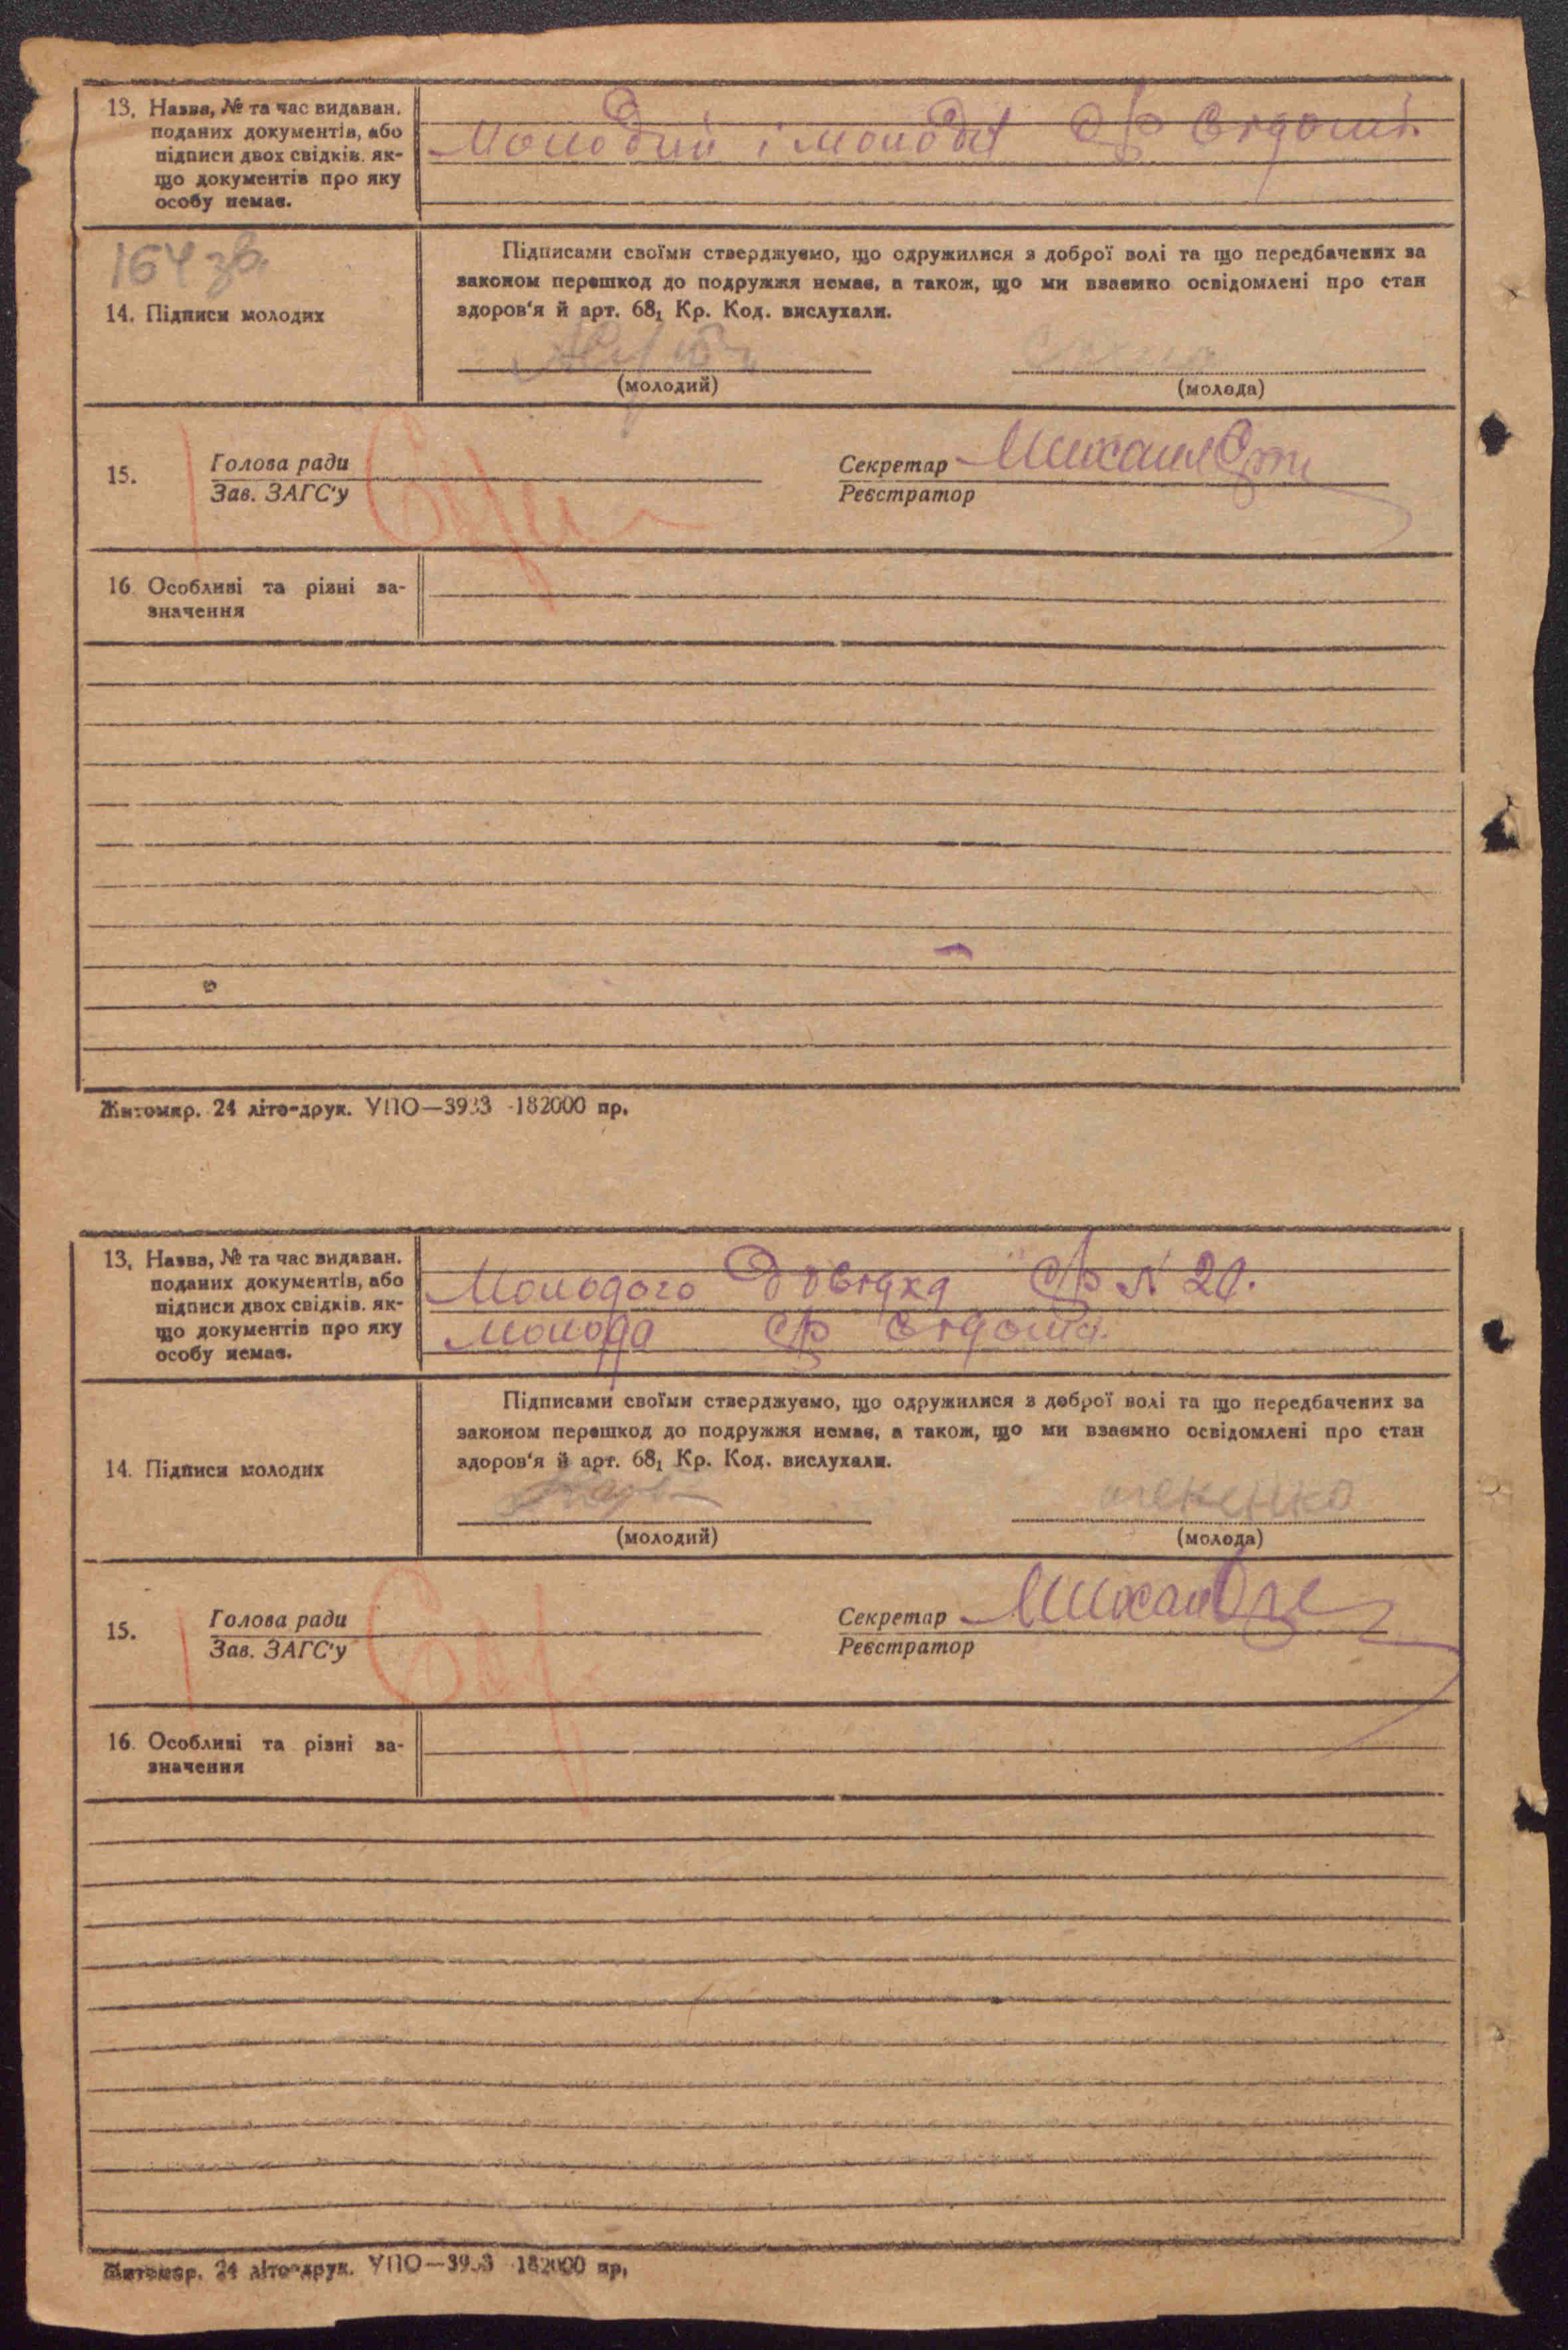 13. Назва, № та час видаван.
поданих документів, або
підписи двох свідків, як-
що документів про яку
особу немає.
Молодий і молода СР відомі.
164 зв.
14. Підписи молодих
Підписами своїми стверджуємо, що одружилися з доброї волі та що передбачених за
законом перешкод до подружжя немає, а також, що ми взаємно освідомлені про стан
здоров'я й арт. 68₁ Кр. Код. вислухали.
(молодий) (молода)
15.
Голова ради
Зав. ЗАГС'у
Секретар
Реєстратор
16. Особливі та різні за-
значення
Житомир. 24 літо-друк. УПО—3933 -182000 пр.
13. Назва, № та час видаван.
поданих документів, або
підписи двох свідків, як-
що документів про яку
особу немає.
Молодого довідка СР N 20.
Молода СР відома.
14. Підписи молодих
Підписами своїми стверджуємо, що одружилися з доброї волі та що передбачених за
законом перешкод до подружжя немає, а також, що ми взаємно освідомлені про стан
здоров'я й арт. 68₁ Кр. Код. вислухали.
(молодий) (молода)
15.
Голова ради
Зав. ЗАГС'у
Секретар
Реєстратор
16. Особливі та різні за-
значення
Житомир. 24 літо-друк. УПО—3933 182000 пр.